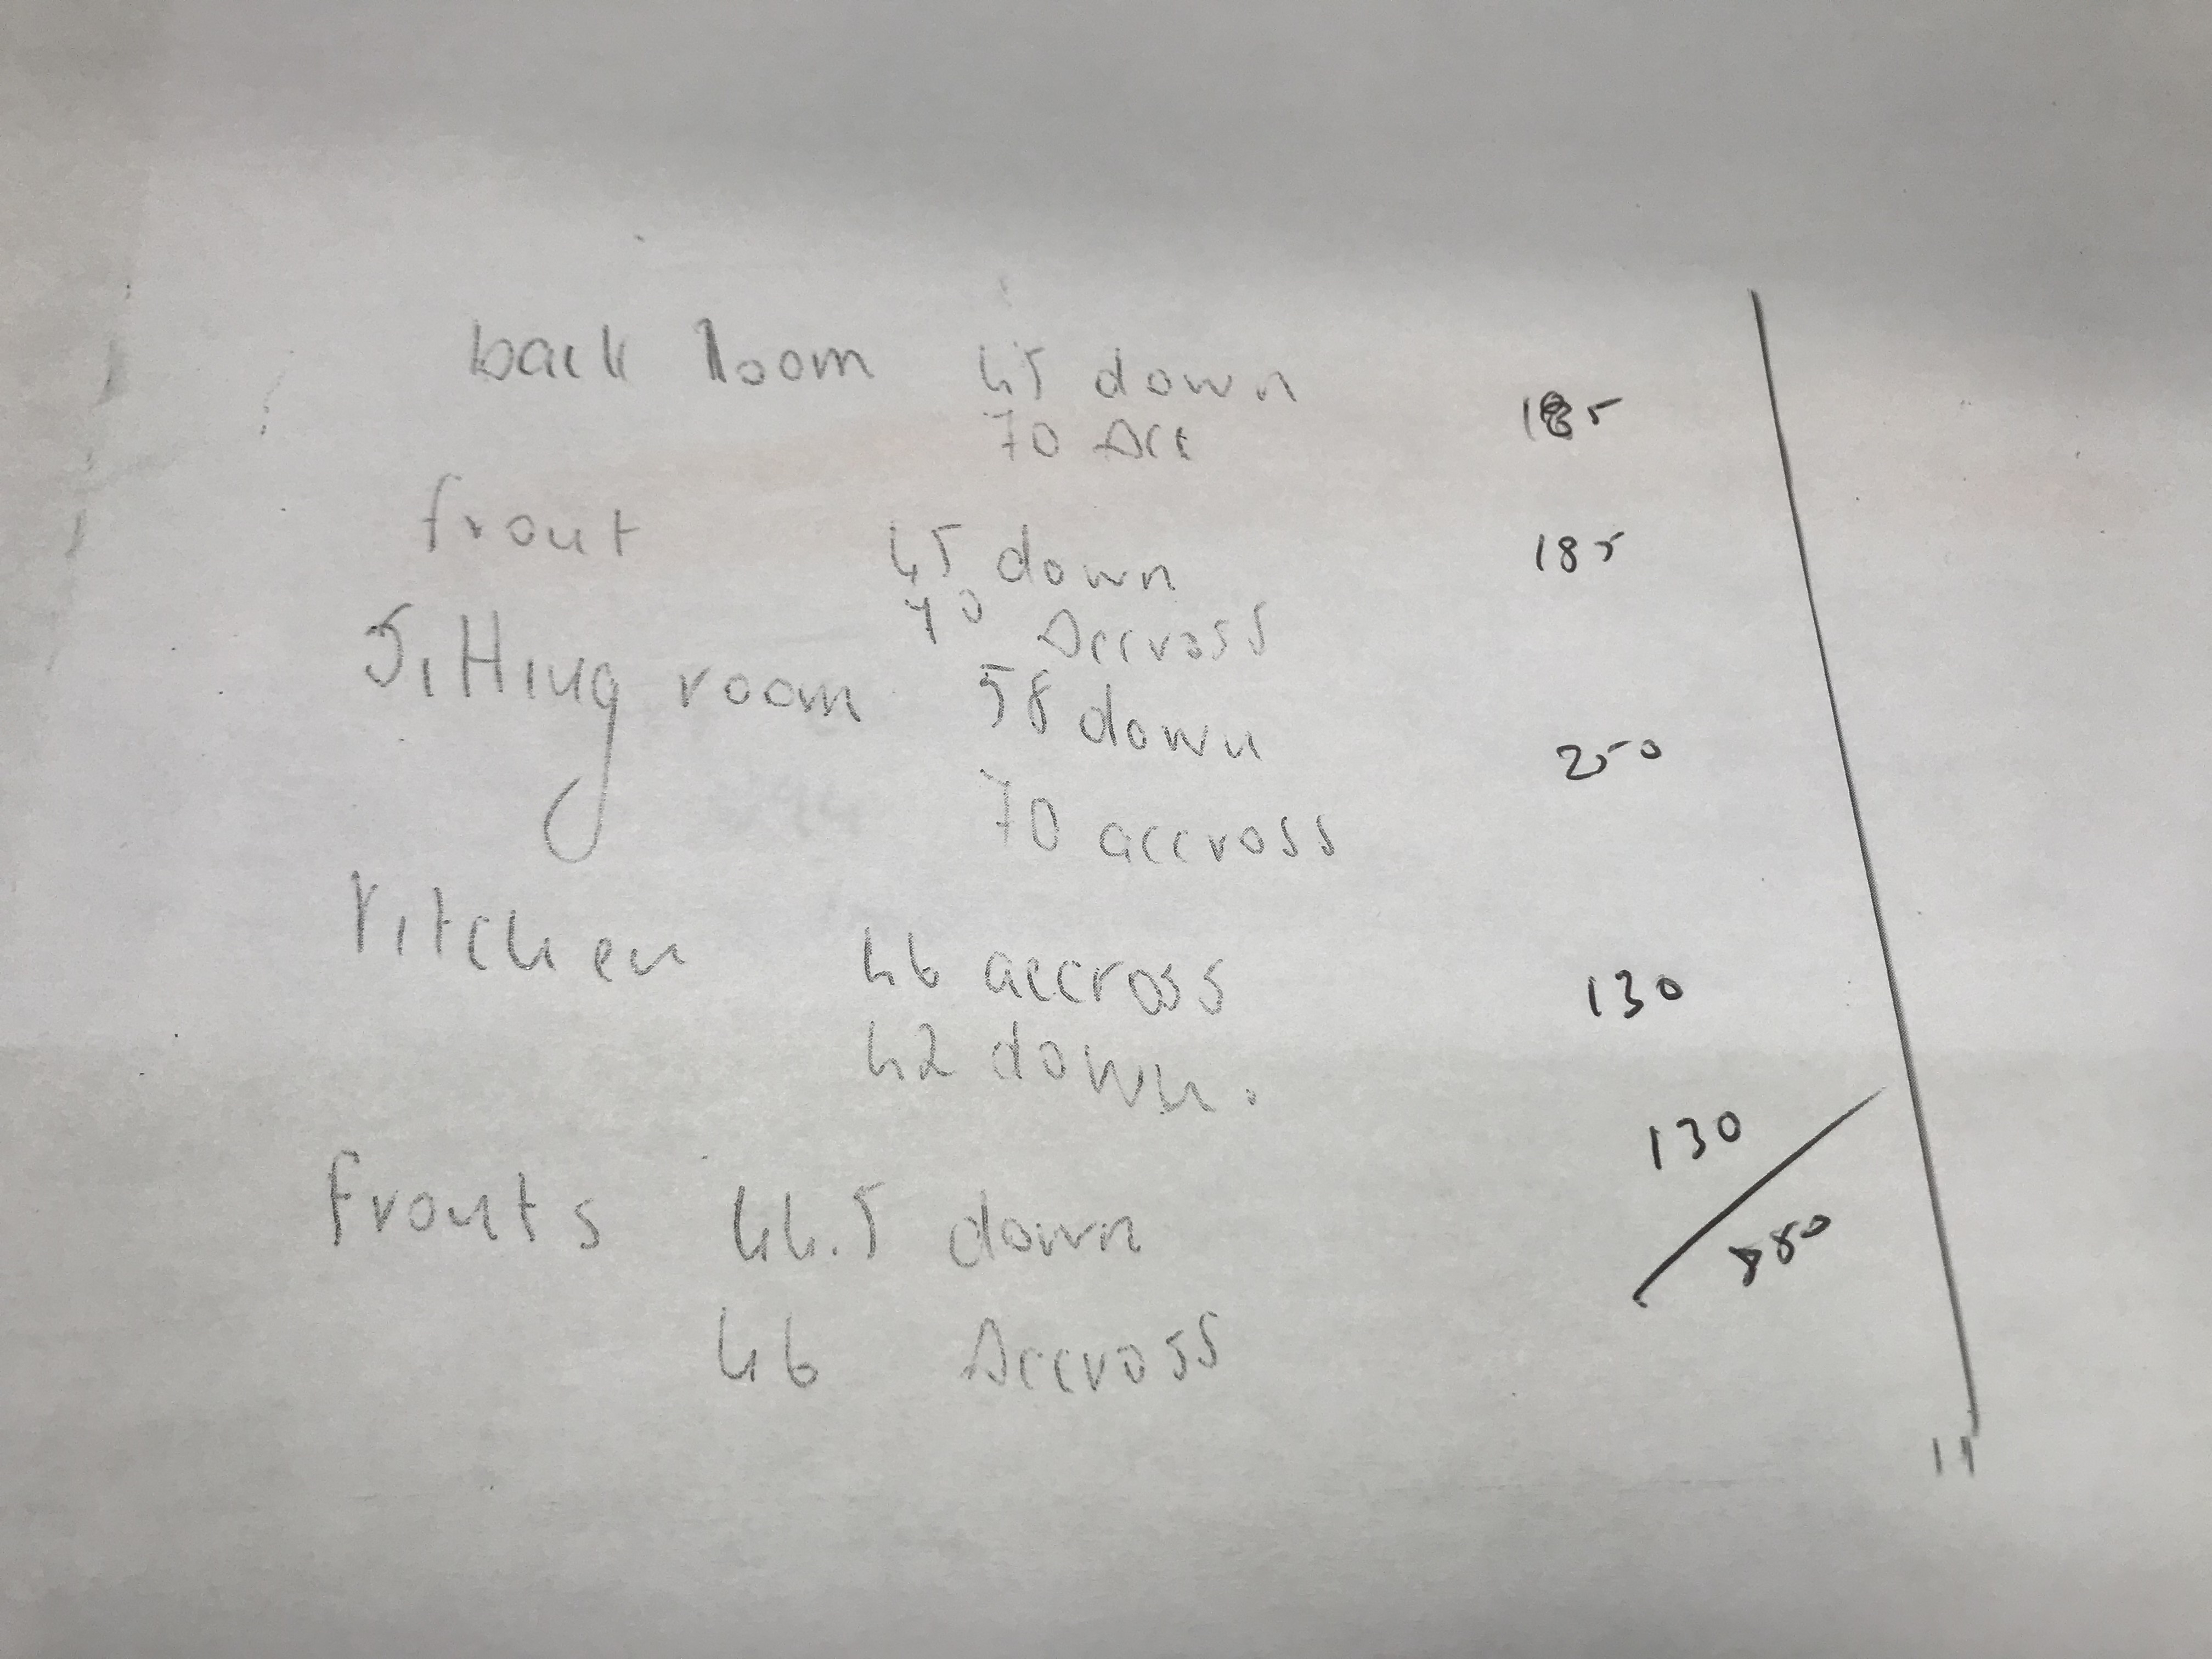 back room 45 down
70 Acc 185
front 45 down 185
70 Accross
Sitting room 58 down
250
70 accross
Kitchen 46 accross 130
42 down.
130
fronts 44.5 down 880
46 Accross
11